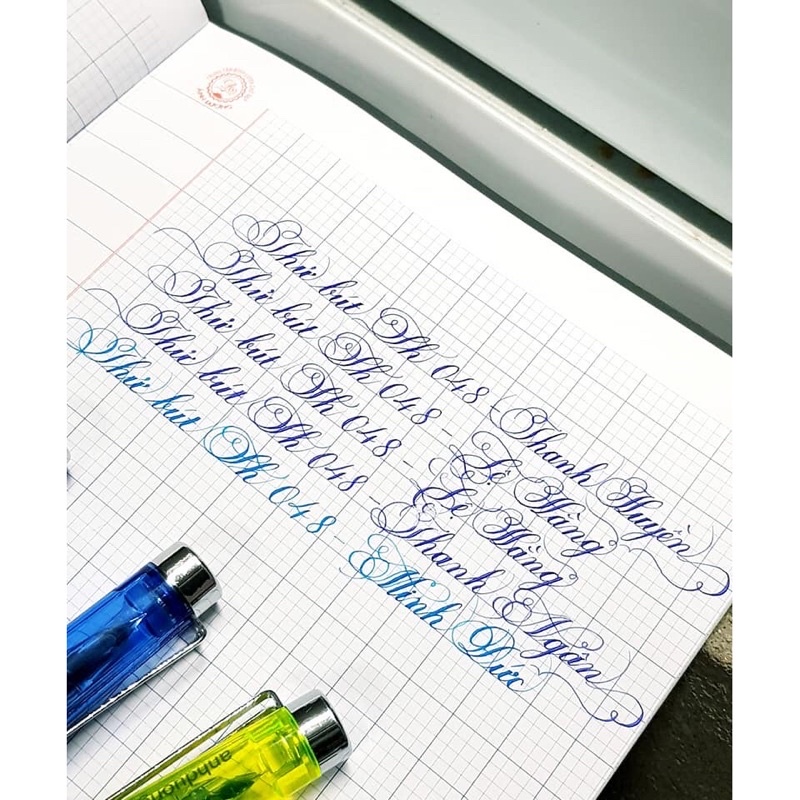 Thử bút Ah 048 - Thanh Huyền
Thử bút Ah 048 - Lệ Hằng
Thử bút Ah 048 - Lê Hằng
Thử bút Ah 048 - Thanh Ngân
Thử bút Ah 048 - Minh Đức
anhduong